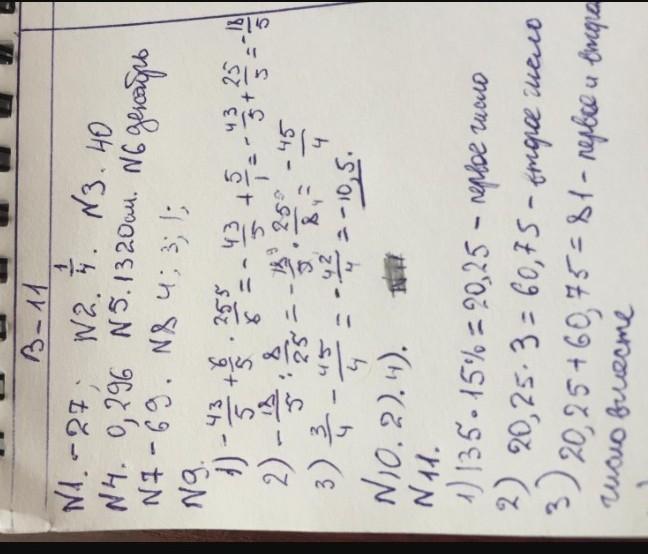 В-11
N1. -27; N2. 1/4. N3. 40
N4. 0,296 N5. 1320см. N6 декабрь
N7 -69. N8 4; 3; 1;
N9.
1) -43/5 + 6/5 · 25 5/6 = -43/5 + 5/1 = -43/5 + 25/5 = -18/5
2) -18/5 : 8/25 = -18 9/5 · 25 5/8 4 = -45/4
3) 3/4 - 45/4 = -42/4 = -10,5.
N10. 2). 4).
N11.
1) 135 · 15% = 20,25 - первое число
2) 20,25 · 3 = 60,75 - второе число
3) 20,25 + 60,75 = 81 - первое и второе
число вместе